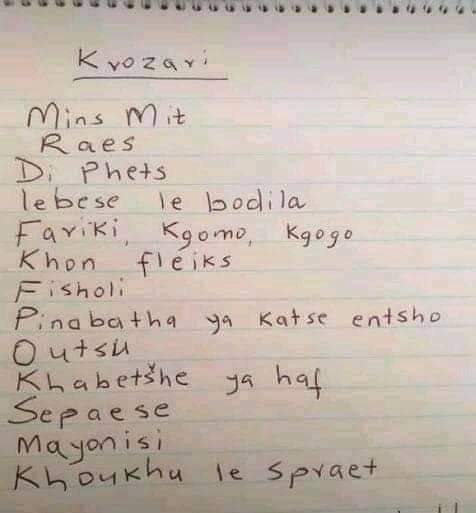 Krozari
Mins Mit
Raes
Di Phets
lebese le bodila
Fariki, Kgomo, Kgogo
Khon fleiks
Fisholi
Pinabatha ya Katse entsho
Outsu
Khabetšhe ya haf
Sepaese
Mayonisi
Khoukhu le Spraet